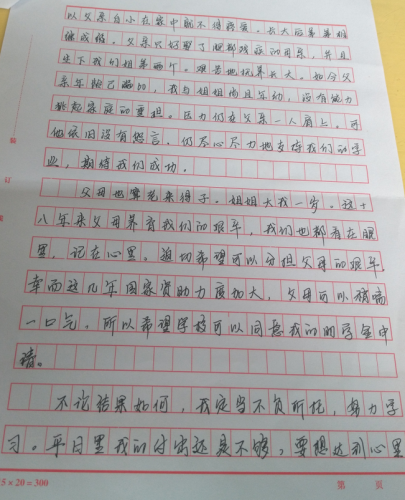 以父亲自小在家中就不得疼爱。长大后爷爷相
继成绩。父亲只好娶了 残疾的母亲，并且
生下我们姐弟两个。艰苦地抚养长大。如今父
亲年龄已高的，我与姐姐尚且年幼，没有能力
承担起家庭的重担。压力仍在父亲一人肩上。可
他依旧没有怨言，仍尽心尽力地支持我们的学
业，期待我们成功。
父母也算老来得子。姐姐大我一岁。这十
八年来父母养育我们的艰辛，我们也都看在眼
里，记在心里。迫切希望可以分担父母的艰辛，
幸而这几年国家资助力度加大，父母可以稍喘
一口气。所以希望学校可以同意我的助学金申
请。
不论结果如何，我定当不负所托，努力学
习。平日里我的付出还是不够，要想达到心里
5×20=300 第 页